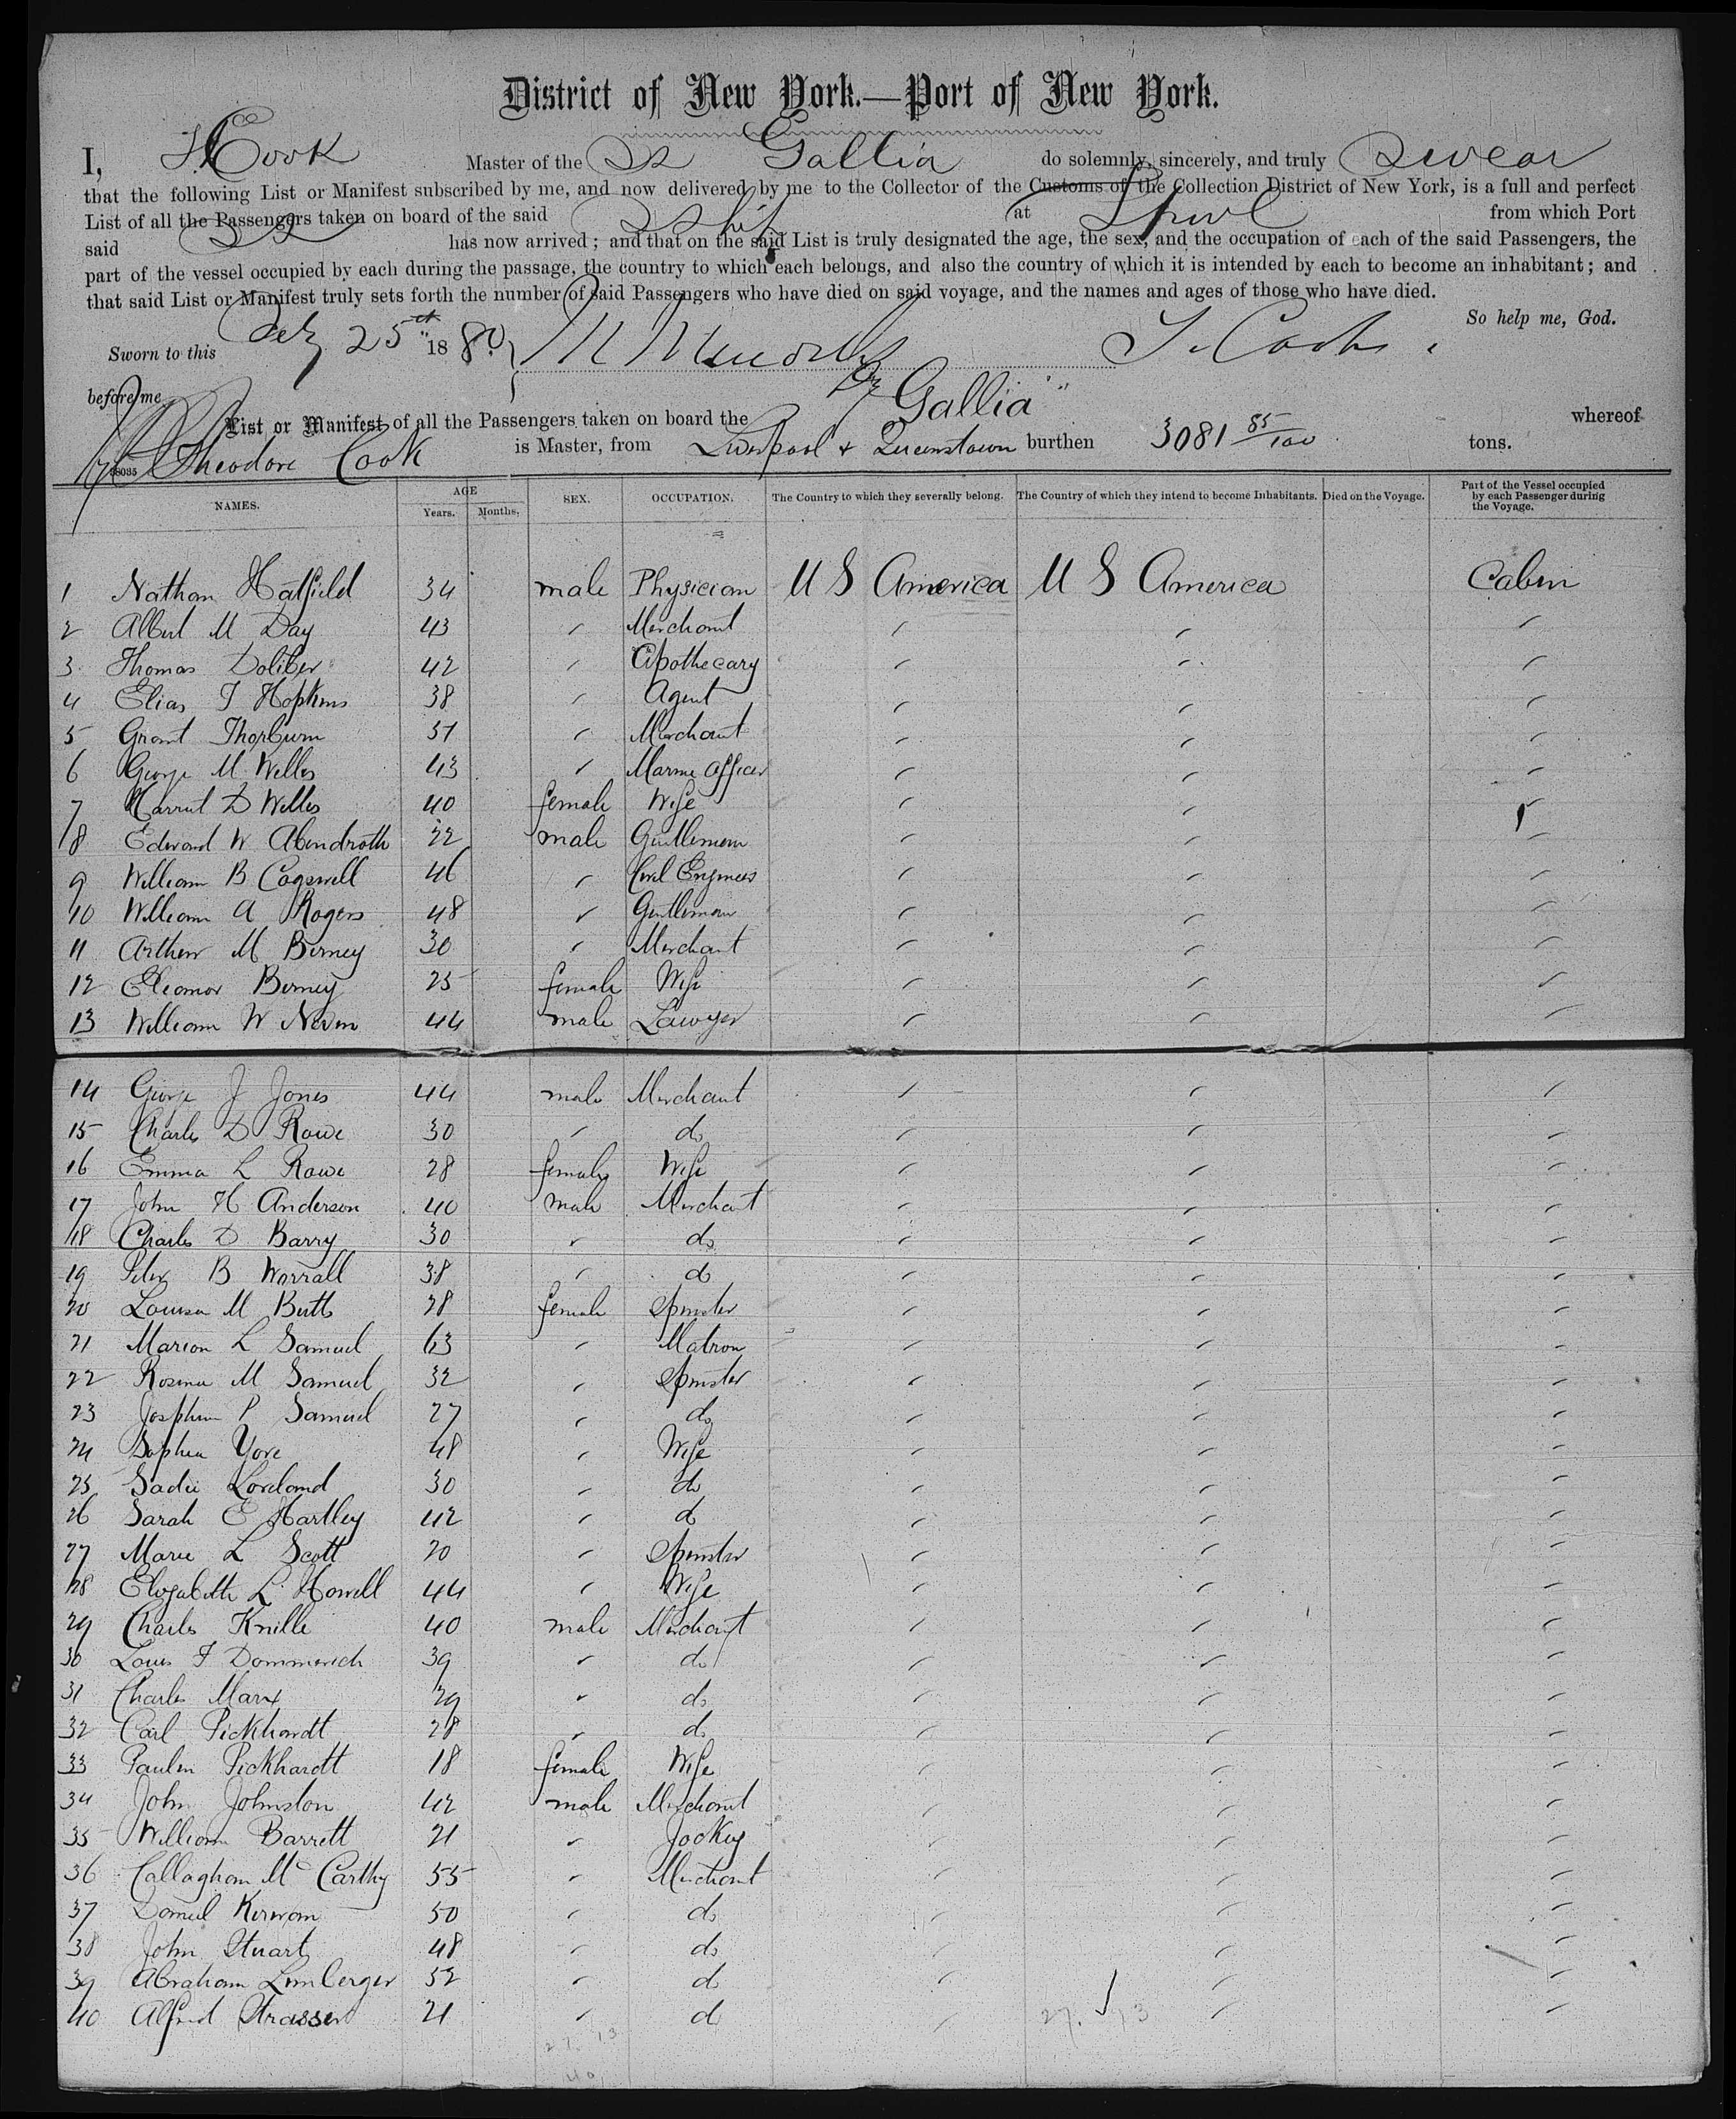 District of New York.—Port of New York.
I, T Cook Master of the SS Gallia do solemnly, sincerely, and truly swear
that the following List or Manifest subscribed by me, and now delivered by me to the Collector of the Customs of the Collection District of New York, is a full and perfect
List of all the Passengers taken on board of the said Sship at Lpool from which Port
said SS has now arrived; and that on the said List is truly designated the age, the sex, and the occupation of each of the said Passengers, the
part of the vessel occupied by each during the passage, the country to which each belongs, and also the country of which it is intended by each to become an inhabitant; and
that said List or Manifest truly sets forth the number of said Passengers who have died on said voyage, and the names and ages of those who have died.
So help me, God.
Sworn to this 25th 1880 T. Cook
before me
List or Manifest of all the Passengers taken on board the "Gallia" whereof
Theodore Cook is Master, from Liverpool & Queenstown burthen 3081 85/100 tons.
NAMES. AGE Years. Months. SEX. OCCUPATION. The Country to which they severally belong. The Country of which they intend to become Inhabitants. Died on the Voyage. Part of the Vessel occupied by each Passenger during the Voyage.
1 Nathan Hatfield 34 male Physician U S America U S America Cabin
2 Albert M Day 43 " Merchant " " "
3 Thomas Doliber 42 " Apothecary " " "
4 Elias T Hopkins 38 " Agent " " "
5 Grant Thorburn 37 " Merchant " " "
6 George M Welles 43 " Marine Officer " " "
7 Harriet D Welles 40 female Wife " " "
8 Edward W Abendroth 22 male Gentleman " " "
9 William B Cogswell 46 " Civil Engineer " " "
10 William A Rogers 48 " Gentleman " " "
11 Arthur M Birney 30 " Merchant " " "
12 Eleanor Birney 25 female Wife " " "
13 William W Nevin 44 male Lawyer " " "
14 George J Jones 44 male Merchant " " "
15 Charles D Rowe 30 " do " " "
16 Emma L Rowe 28 female Wife " " "
17 John H Anderson 40 male Merchant " " "
18 Charles D Barry 30 " do " " "
19 Peter B Worrall 38 " do " " "
20 Louisa M Butts 28 female Spinster " " "
21 Marion L Samuel 63 " Matron " " "
22 Rosina M Samuel 32 " Spinster " " "
23 Josephine P Samuel 27 " do " " "
24 Sophia Yore 48 " Wife " " "
25 Sadie Loveland 30 " do " " "
26 Sarah E Hartley 42 " do " " "
27 Marie L Scott 20 " Spinster " " "
28 Elizabeth L Howell 44 " Wife " " "
29 Charles Knille 40 male Merchant " " "
30 Louis F Dommerich 39 " do " " "
31 Charles Marx 29 " do " " "
32 Carl Pickhardt 28 " do " " "
33 Paulin Pickhardt 18 female Wife " " "
34 John Johnston 42 male Merchant " " "
35 William Barrett 21 " Jockey " " "
36 Callaghan McCarthy 55 " Merchant " " "
37 Daniel Kerwan 50 " do " " "
38 John Stuart 48 " do " " "
39 Abraham Limberger 52 " do " " "
40 Alfred Strasser 21 " do " " "
27. 13
27. 13
40